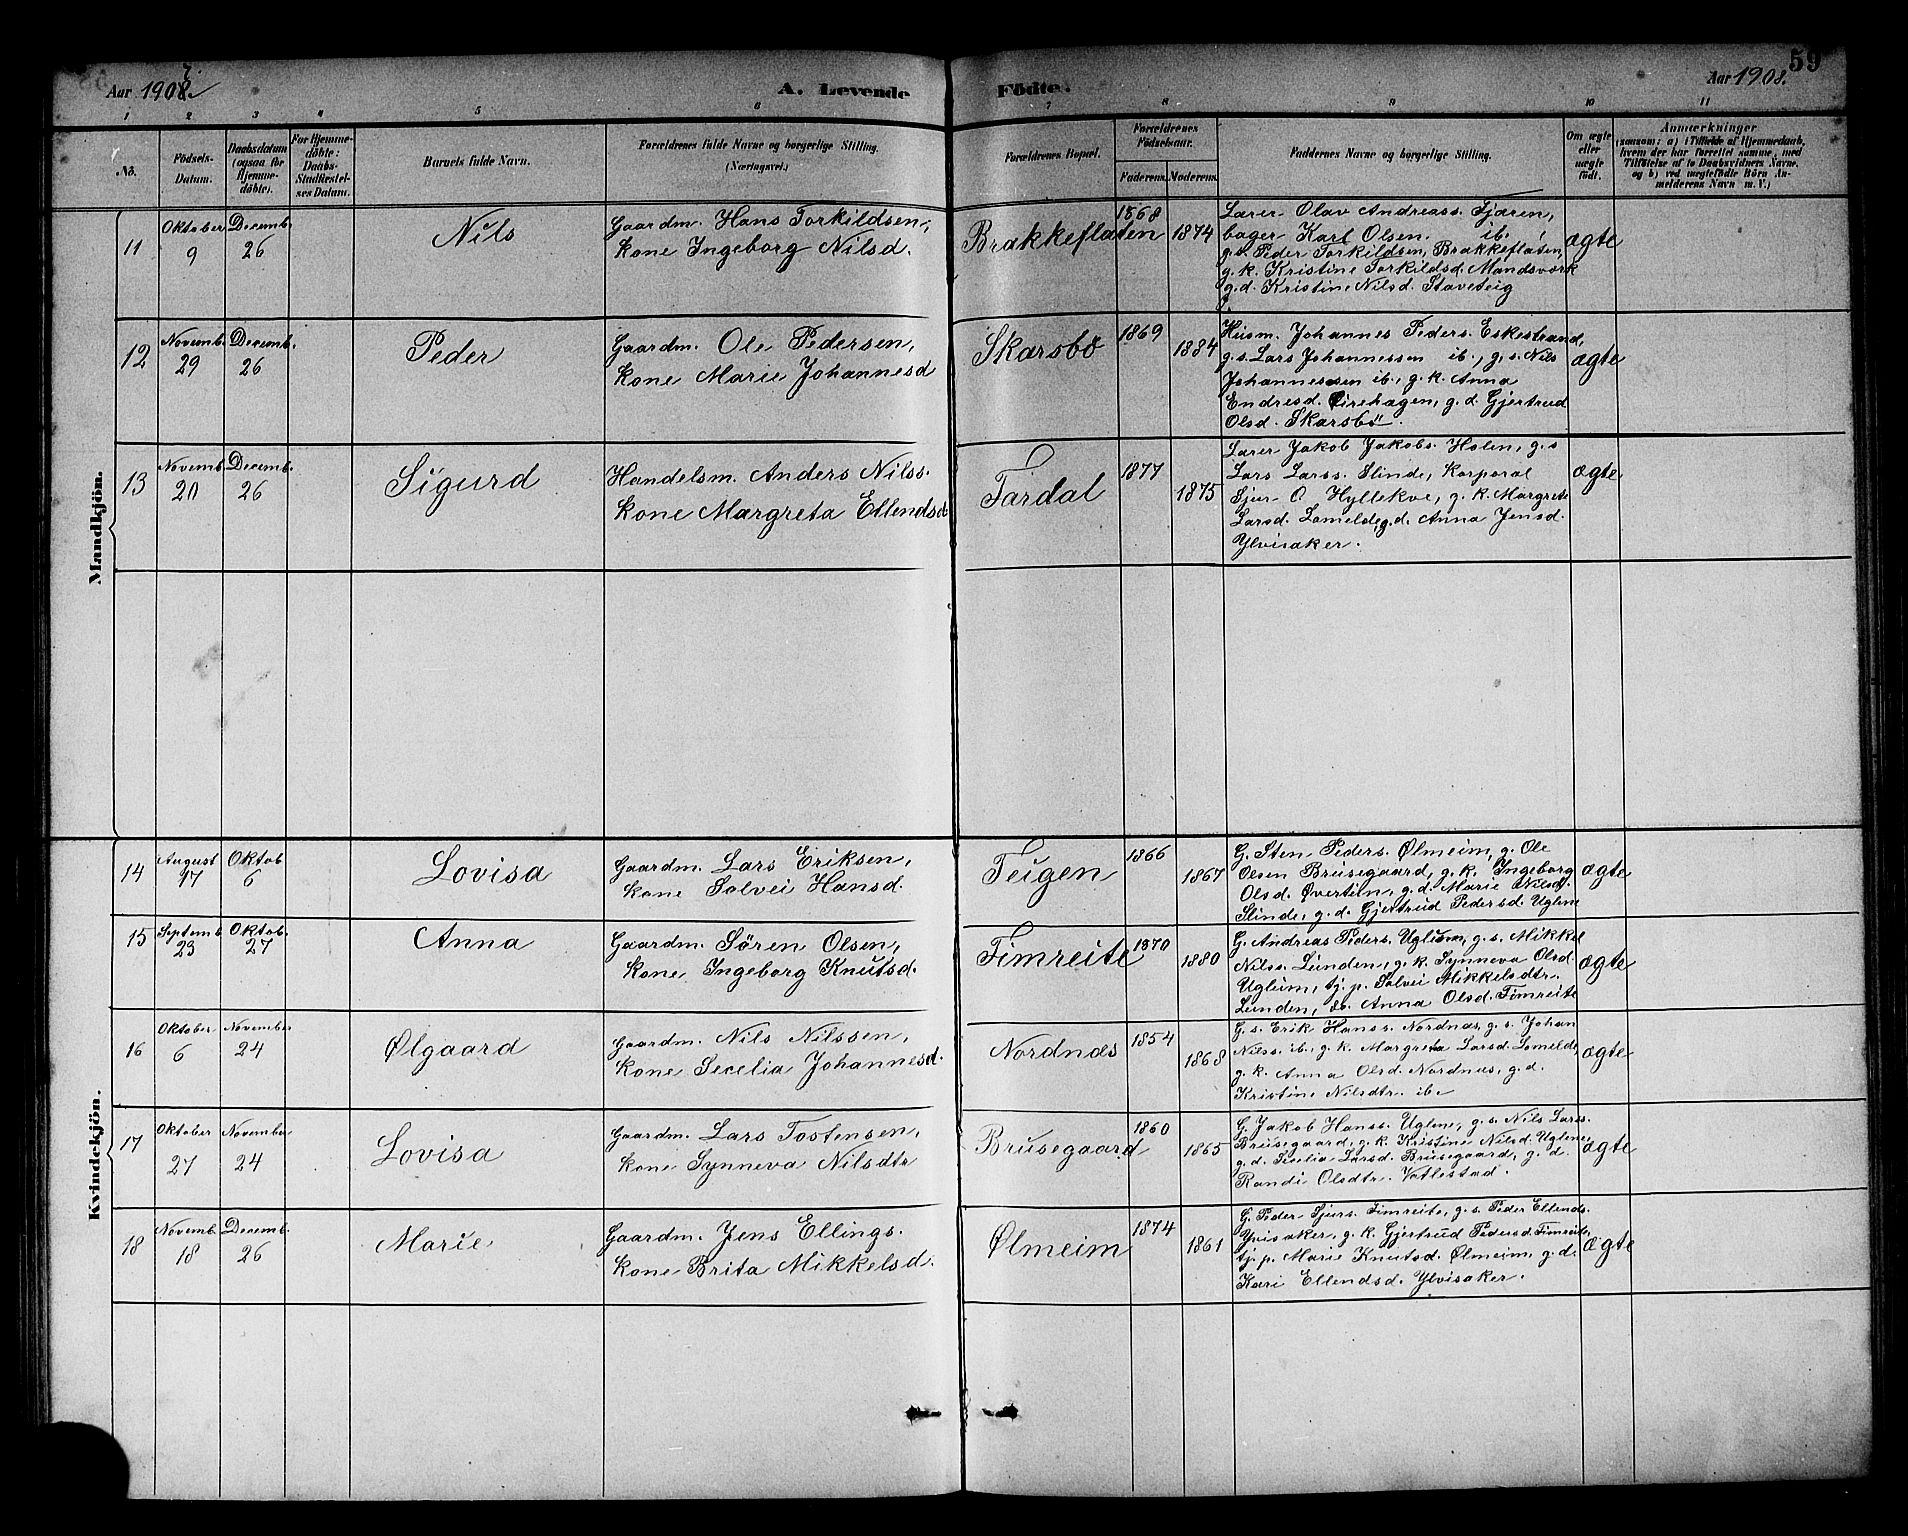 Aar 1908. 7.
A. Levende
Födte.
Aar 1908.
59
1 2 3 4 5 6 7 8 9 10 11
No.
Födsels-
Datum.
Daabsdatum
(ogsaa for
Hjemme-
döbte).
For Hjemme-
döbte:
Daabs-
Stadfæstel-
ses Datum.
Barnets fulde Navn.
Forældrenes fulde Navne og borgerlige Stilling.
(Næringsvei.)
Forældrenes Bopæl.
Forældrenes
Födselsaar.
Faderens. Moderens.
Faddernes Navne og borgerlige Stilling.
Om ægte
eller
uægte
födt.
Anmærkninger
(saasom: a) i Tilfælde af Hjemmedaab,
hvem der har forrettet samme, med
Tilföielse af to Daabsvidners Navne,
og b) ved uægtefödte Börn An-
melderens Navn m. V.)
Mandkjön.
11
Oktober
9
Decemb.
26
Nils
Gaardm. Hans Torkildsen,
kone Ingeborg Nilsd.
Brækkeflaten
1868
1874
Lærer Olav Andreass. Fjæren,
bager Karl Olsen ib.
g.s. Peder Torkildsen, Brækkeflaten,
g.k. Kristine Torkildsd. Mandsverk
g.d. Kristine Nilsd. Staveteig
ægte
12
Novemb.
29
Decemb.
26
Peder
Gaardm. Ole Pedersen,
kone Marie Johannesd
Skarsbö
1869
1884
Husm. Johannes Peders. Eskestrand,
g.s. Lars Johannessen ib., g.s. Nils
Johannessen ib., g.k. Anna
Endresd. Eirehagen, g.d. Gjertrud
Olsd. Skarsbö.
ægte
13
Novemb.
20
Decemb.
26
Sigurd
Handelsm. Anders Nilss.
kone Margreta Ellendsd
Fardal
1877
1875
Lærer Jakob Jakobs. Holen, g.s
Lars Larss. Slinde, Korporal
Sjur O. Hyllekve, g.k. Margrete
Larsd. Lomelde, g.d. Anna Jensd.
Ylvisaker.
ægte
Kvindekjön.
14
August
17
Oktob
6
Lovisa
Gaardm. Lars Eriksen,
kone Solvei Hansd.
Teigen
1866
1867
G. Sten Peders. Ølmeim, g. Ole
Olsen Brusegaard, g.k. Ingeborg
Olsd. Øvertün, g.d. Marie Nilsd.
Slinde, g.d. Gjertrud Pedersd. Uglem
ægte
15
Septemb
23
Oktob.
27
Anna
Gaardm. Sören Olsen,
kone Ingeborg Knutsd.
Fimreite
1870
1880
G. Andreas Peders. Uglum, g.s. Mikkel
Nilss. Lunden, g.k. Synneva Olsd
Ugleim, tj.p. Solvei Mikkelsdtr.
Lunden, do. Anna Olsd. Fimreite
ægte
16
Oktober
6
November
24
Ølgaard
Gaardm. Nils Nilssen,
kone Secelia Johannesd.
Nordnæs
1854
1868
G.s. Erik Hanss. Nordnæs, g.s. Johan
Nilss. ib., g.k. Margreta Larsd. Lomelde,
g.k. Anna Olsd. Nordnæs, g.d.
Kristine Nilsdtr. ib.
ægte
17
Oktober
27
November
24
Lovisa
Gaardm. Lars Tostensen,
kone Synneva Nilsdtr
Brusegaard
1860
1865
G. Jakob Hanss. Uglene, g.s. Nils Larss.
Brusegaard, g.k. Kristine Nilsd. Uglene,
g.d. Secelia Larsd. Brusegaard, g.d.
Randi Olsdtr. Vatlestad.
ægte
18
Novemb.
18
Decemb.
26
Marie
Gaardm. Jens Ellings.
kone Brita Mikkelsd.
Ølmeim
1874
1861
G. Peder Sjurs. Fimreite, g.s. Peder Ellends.
Yvisaker, g.k. Gjertrud Pedersd. Fimreite,
tj.p. Marie Knutsd. Ølmeim, g.d.
Kari Ellendsd. Ylvisaker.
ægte